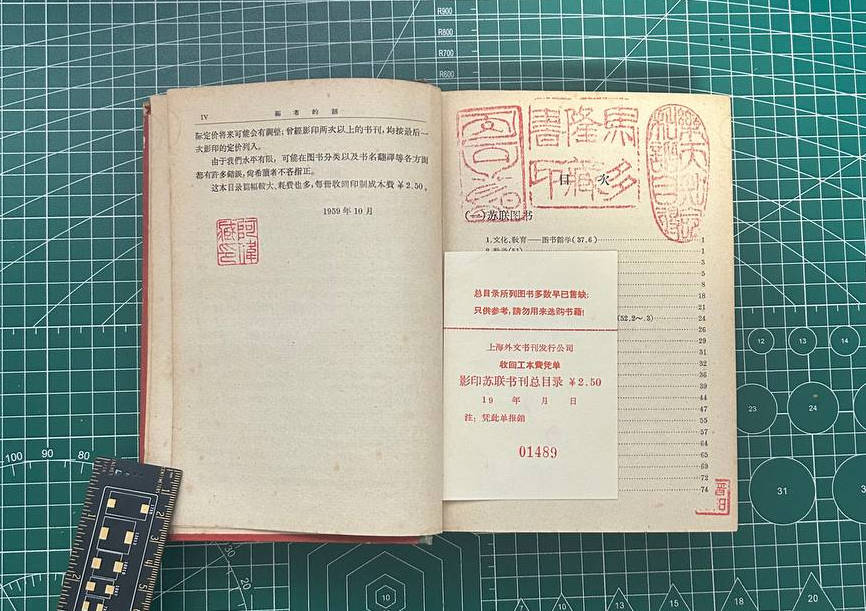 IV
編者的話
际定价将来可能会有調整;曾經影印两次以上的书刊,均按最后一
次影印的定价列入。
由于我們水平有限,可能在图书分类以及书名翻譯等各方面
都有許多錯誤,尚希讀者不吝指正。
这本目录篇幅較大、耗費也多,每册收回印制成本費￥2.50。
1959年10月
阿諱
藏书
目 次
(一)苏联图书
1.文化、敎育——图书館学(37,6) 1
1
3
5
5
8
18
21
(52,2～.3) 24
26
29
31
32
36
39
44
47
55
57
64
65
69
72
74
总目录所列图书多数早已售缺;
只供参考,請勿用来选购书籍!
上海外文书刊发行公司
收回工本費凭单
影印苏联书刊总目录 ￥2.50
19 年 月 日
注:凭此单报銷
01489
R900
R800
R700
R600
100
90
80
30
20
10
12
13
14
23
24
31
7
10
13
15
18
20